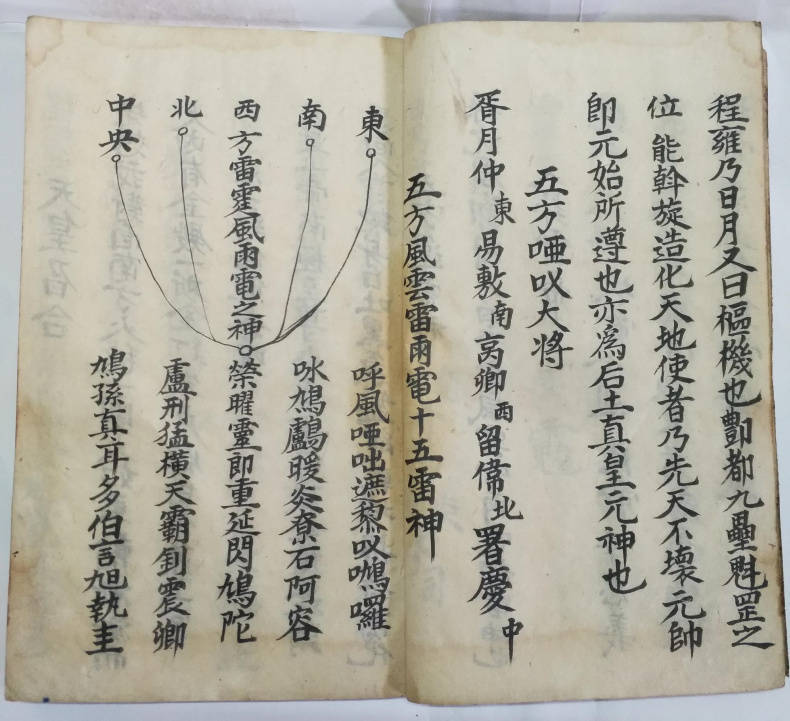 程雍乃日月又曰樞機也酆都九壘魁罡之
位能斡旋造化天地使者乃先天不壞元帥
即元始所遵也亦爲后土真皇元神也
五方啞㕥大将
胥月仲東易敷南卿西留北署慶中
五方風雲雷雨電十五雷神
東 呼風啞咄遮黎㕥囉
南 咏鳩鸕暖炎尞石阿容
西方雷霆風雨電之神榮曜靈即重延閃鳩陀
北 盧刑猛橫天霸釗震卿
中央 鳩孫真耳多伯言旭執圭